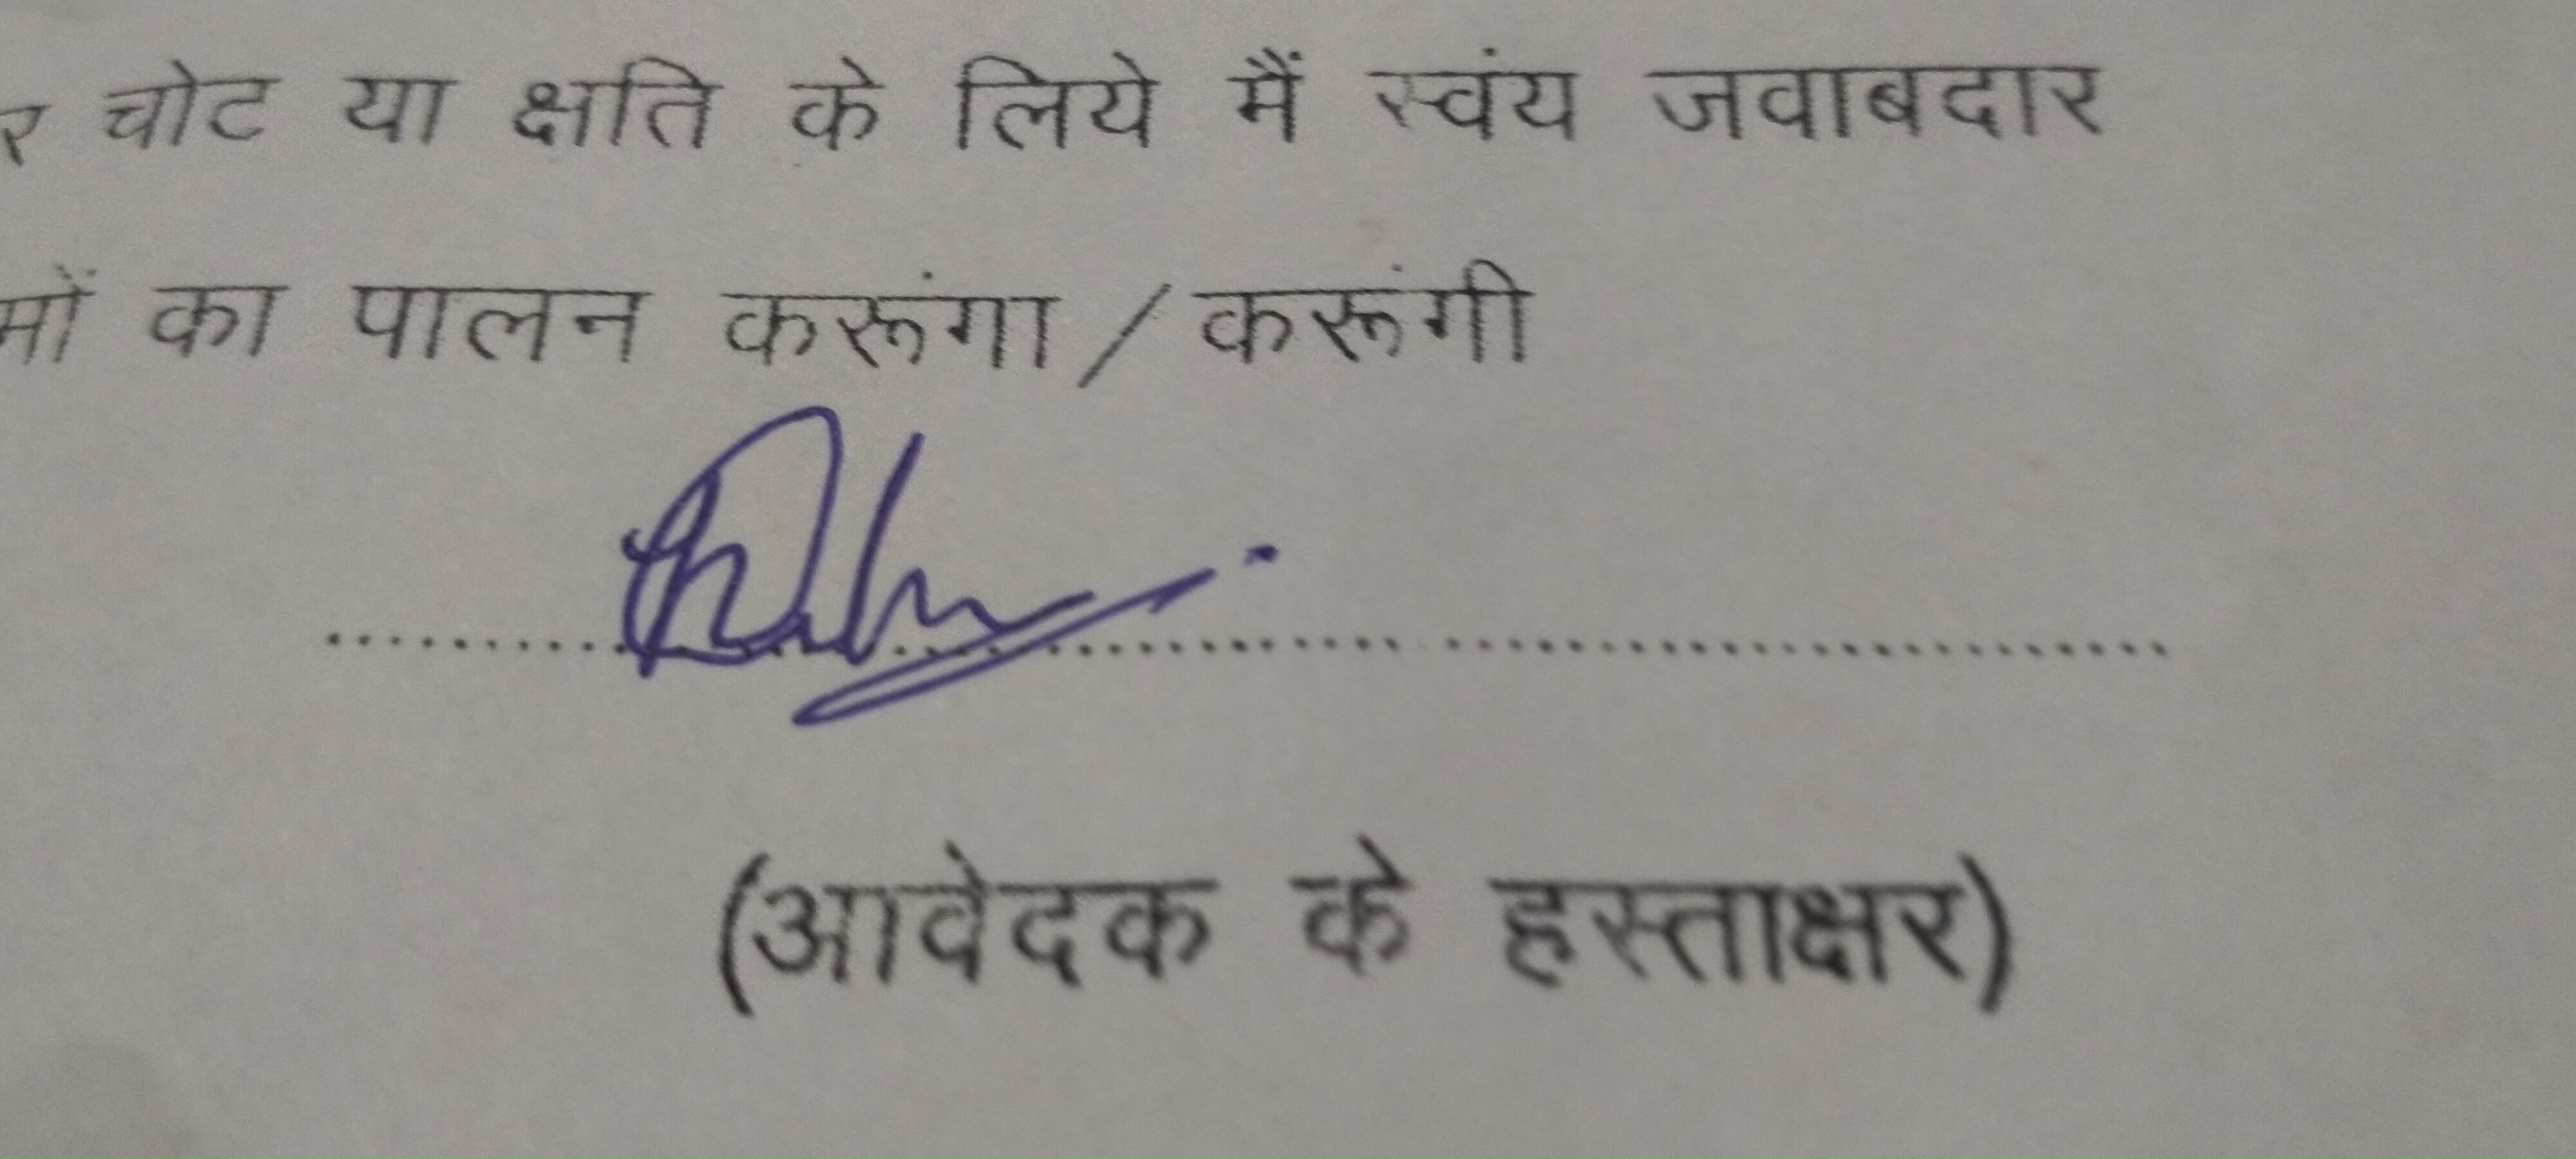 र चोट या क्षति के लिये मैं स्वंय जवाबदार
मों का पालन करूंगा / करूंगी
(आवेदक के हस्ताक्षर)